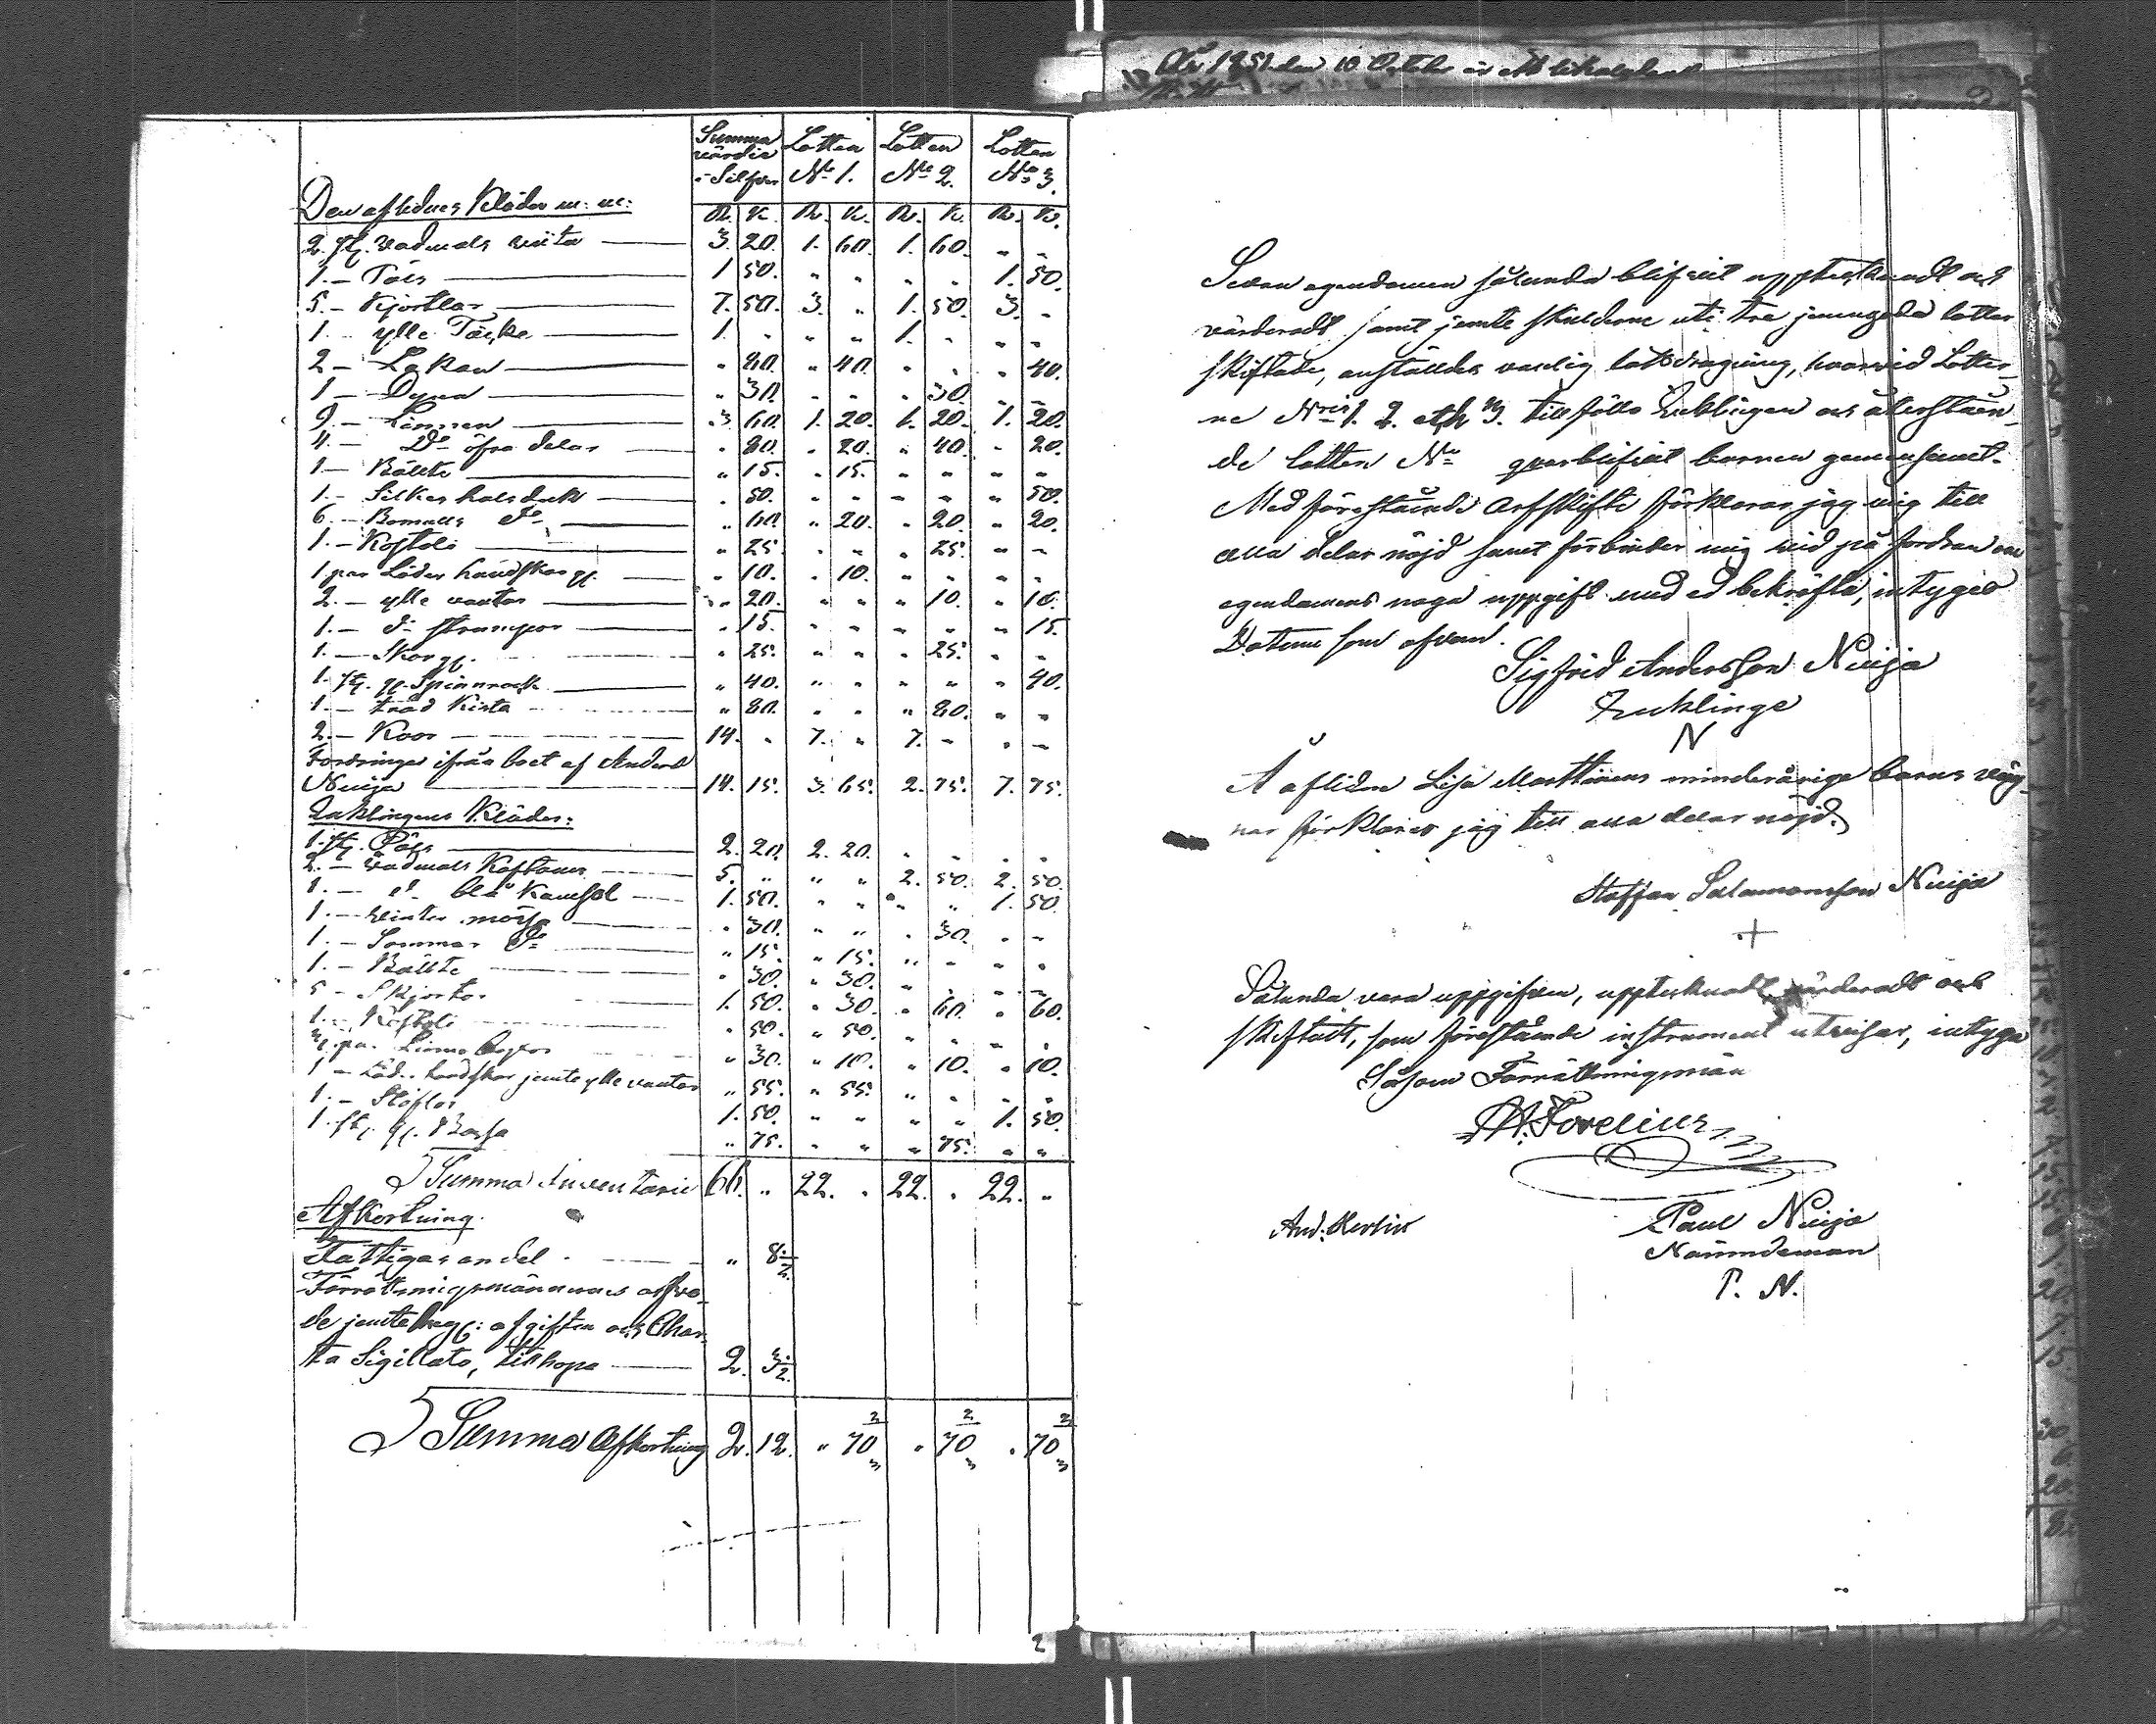 Summa värdie i Silfver | Lotten No 1. | Lotten No 2. | Lotten No 3.
Den aflednes Kläder m: m: | R. | K. | R. | K. | R. | K. | R. | K.
2. st. vadmals | 3. | 20. | 1. | 60. | 1. | 60. | „ | „
1.— Päls | 1 | 50. | „ | „ | „ | „ | 1. | 50.
5.— Kjortlar | 7. | 50. | 3. | „ | 1. | 50. | 3. | „
1.— ylle Täcke | 1. | „ | „ | „ | 1. | „ | „ | „
2— Lakan | „ | 80. | „ | 40. | „ | „ | „ | 40.
1— Dyna | „ | 30. | „ | „ | „ | 30. | „ | „
9.— Linnen | 3. | 60. | 1. | 20. | 1. | 20. | 1. | 20.
4.— Do öfra delar | „ | 80. | „ | 20. | „ | 40. | „ | 20.
1.— Bällte | „ | 15. | „ | 15. | „ | „ | „ | „
1.— Silkes halsduk | „ | 50. | „ | „ | „ | „ | „ | 50.
6.— Bomulls do | „ | 60. | „ | 20. | „ | 20. | „ | 20.
1.— Koftoli | „ | 25. | „ | „ | „ | 25. | „ | „
1 par Läder handskar gl. | „ | 10. | „ | 10. | „ | „ | „ | „
2.— ylle vantar | „ | 20. | „ | „ | „ | 10. | „ | 10.
1.— do strumpor | „ | 15. | „ | „ | „ | „ | „ | 15.
1.— Skor gl. | „ | 25. | „ | „ | „ | 25. | „ | „
1. st. gl. Spinnrock | „ | 40. | „ | „ | „ | „ | „ | 40.
1.— träd Kista | „ | 80. | „ | „ | „ | 80. | „ | „
2.— Koor | 14. | „ | 7. | „ | 7. | „ | „ | „
Fordringar ifrån boet af Anders
Nuija | 14. | 15. | 3. | 65. | 2. | 75. | 7. | 75.
Enklingens Kläder:
1. st. Päls | 2. | 20. | 2. | 20. | „ | „ | „ | „
2.— Vadmals Kaftaner | 5. | „ | „ | „ | 2. | 50. | 2. | 50.
1.— do blå Kamsol | 1. | 50. | „ | „ | „ | „ | 1. | 50.
1.— Winter mössa | „ | 30. | „ | „ | „ | 30. | „ | „
1.— Sommar do | „ | 15. | „ | 15. | „ | „ | „ | „
1.— Bällte | „ | 30. | „ | 30. | „ | „ | „ | „
5— Skjortor | 1. | 50. | „ | 30. | „ | 60. | „ | 60.
1.— Koftoli | „ | 50. | „ | 50. | „ | „ | „ | „
3. par Linne | „ | 30. | „ | 10. | „ | 10. | „ | 10.
1— Läd: handskar jemte ylle vantar | „ | 55. | „ | 55. | „ | „ | „ | „
1.— Stöflor | 1. | 50. | „ | „ | „ | „ | 1. | 50.
1. st. gl. | „ | 75. | „ | „ | „ | 75. | „ | „
Summa Inventarie | 66. | „ | 22. | „ | 22. | „ | 22. | „
Afkortning.
Fattigas andel | „ | 8 1/2.
Förrättningsmännernes arfvo-
de jemte afgiften och Char-
ta Sigillata, tilhopa | 2. | 3 1/2.
Summa afkortning | 2. | 12. | „ | 70 2/3 | „ | 70 2/3 | „ | 70 2/3
2
År 1851 den 10 October
Sedan egendomen sålunda blifvit upptecknadt och
värderadt samt jemte skulderne uti tre jemngoda lotter
skiftade, anställdes vanlig lottdragning, hvarvid Lotter-
ne Nris 1. 2. och 3. tillföllo Enklingen och återståen-
de lotten No qvarblifvit barnen gemensamt.
Med förestående arfskifte förklarar jag mig till
alla delar nöjd samt förbinder mig vid påfordran om
egendomens noga uppgift med ed bekräfta, intygas
Datum som ofvan.
Sigfrid Andersson Nuija
Enklinge
N
Å aflidne Lisa Marttinens minderåriga barns väg-
nar förklarar jag till alla delar nöjd.
Staffan Salamonsson Nuija
+
Sålunda vara uppgifven, upptecknadt, värderadt och
skiftadt, som förestående instrument utvisar, intyga
Såsom Förrättningsmän
A. Forelius
And. Kerlin
Paul Nuija
Nämndeman
P. N.